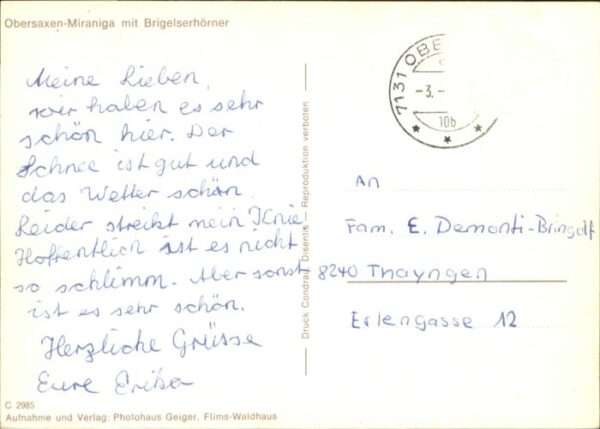 Obersaxen-Miraniga mit Brigelserhörner
Meine Lieben,
wir haben es sehr
schön hier. Der
Schnee ist gut und
das Wetter schön.
Leider streikt mein Knie!
Hoffentlich ist es nicht
so schlimm. Aber sonst
ist es sehr schön.
Herzliche Grüsse
Eure Erika
C 2985
Aufnahme und Verlag: Photohaus Geiger, Flims-Waldhaus
Druck Condrau, Disentis — Reproduktion verboten
7131 OBE
-3.-
10b
An
Fam. E. Demonti-Bringolf
8240 Thayngen
Erlengasse 12